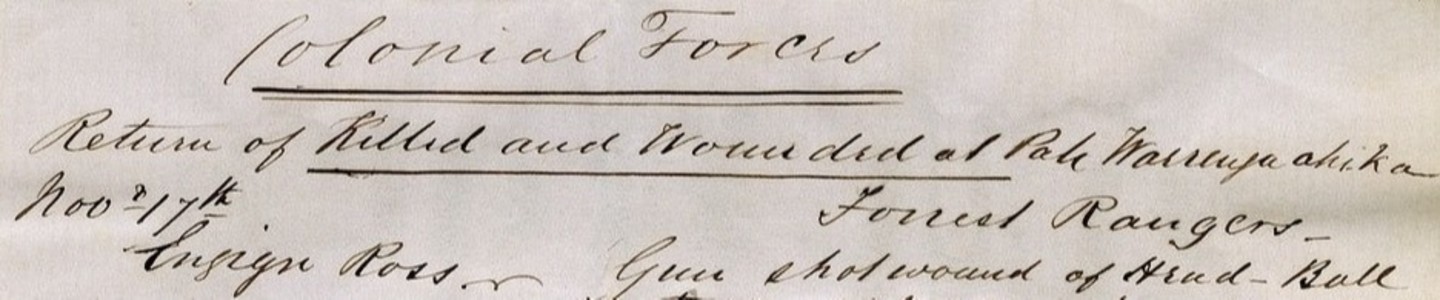 Colonial Forces
Return of Killed and Wounded at Pah Warrenga ahika
Novr 17th Forrest Rangers -
Ensign Ross - Gun shot wound of Head - Ball